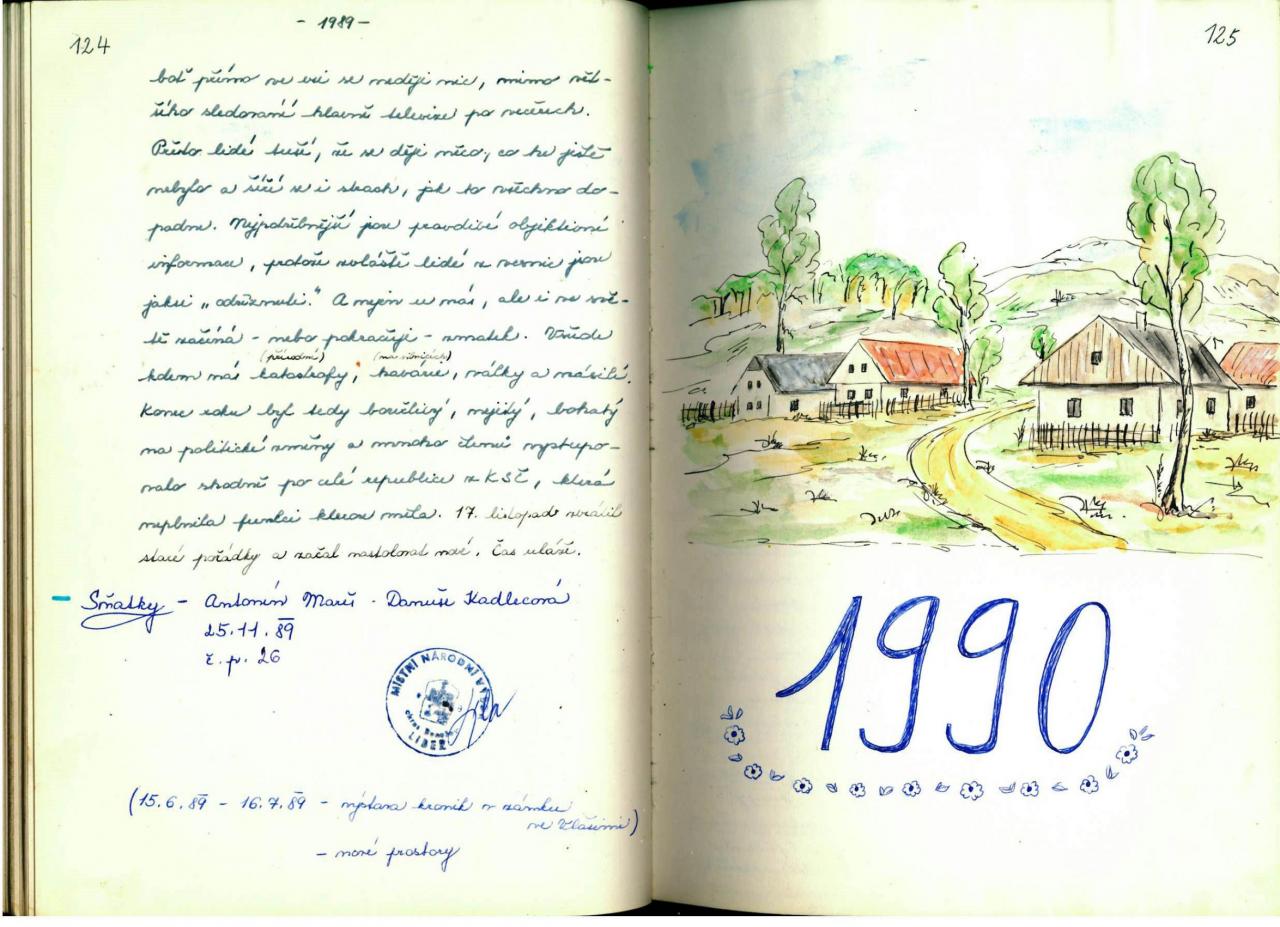 - 1989 -
124
boť přímo ve vsi se neděje nic, mimo vět-
šího sledování hlavně televize po večerech.
Přesto lidé tuší, že se děje něco, co tu ještě
nebylo a šíří se i strach, jak to všechno do-
padne. Nejpotřebnější jsou pravdivé objektivní
informace, protože zvláště lidé z vesnic jsou
jaksi „odříznuti." A nejen u nás, ale i ve svě-
tě začíná - nebo pokračuje - zmatek. Všude
(přírodní) (na silnicích)
kolem nás katastrofy, havárie, války a násilí.
Konec roku byl tedy bouřlivý, nejistý, bohatý
na politické změny a mnoho členů vystupo-
valo shodně po celé republice z KSČ, která
neplnila funkci kterou měla. 17. listopad zvrátil
staré pořádky a začal nastolovat nové. Čas ukáže.
Sňatky - Antonín Mareš - Danuše Kadlecová
25.11.89
č.p. 26
MÍSTNÍ NÁRODNÍ
okres Benešov
LIBEŘ
(15.6.89 - 16.7.89 - výstava kronik v zámku
ve Vlašimi)
- nové prostory
125
1990